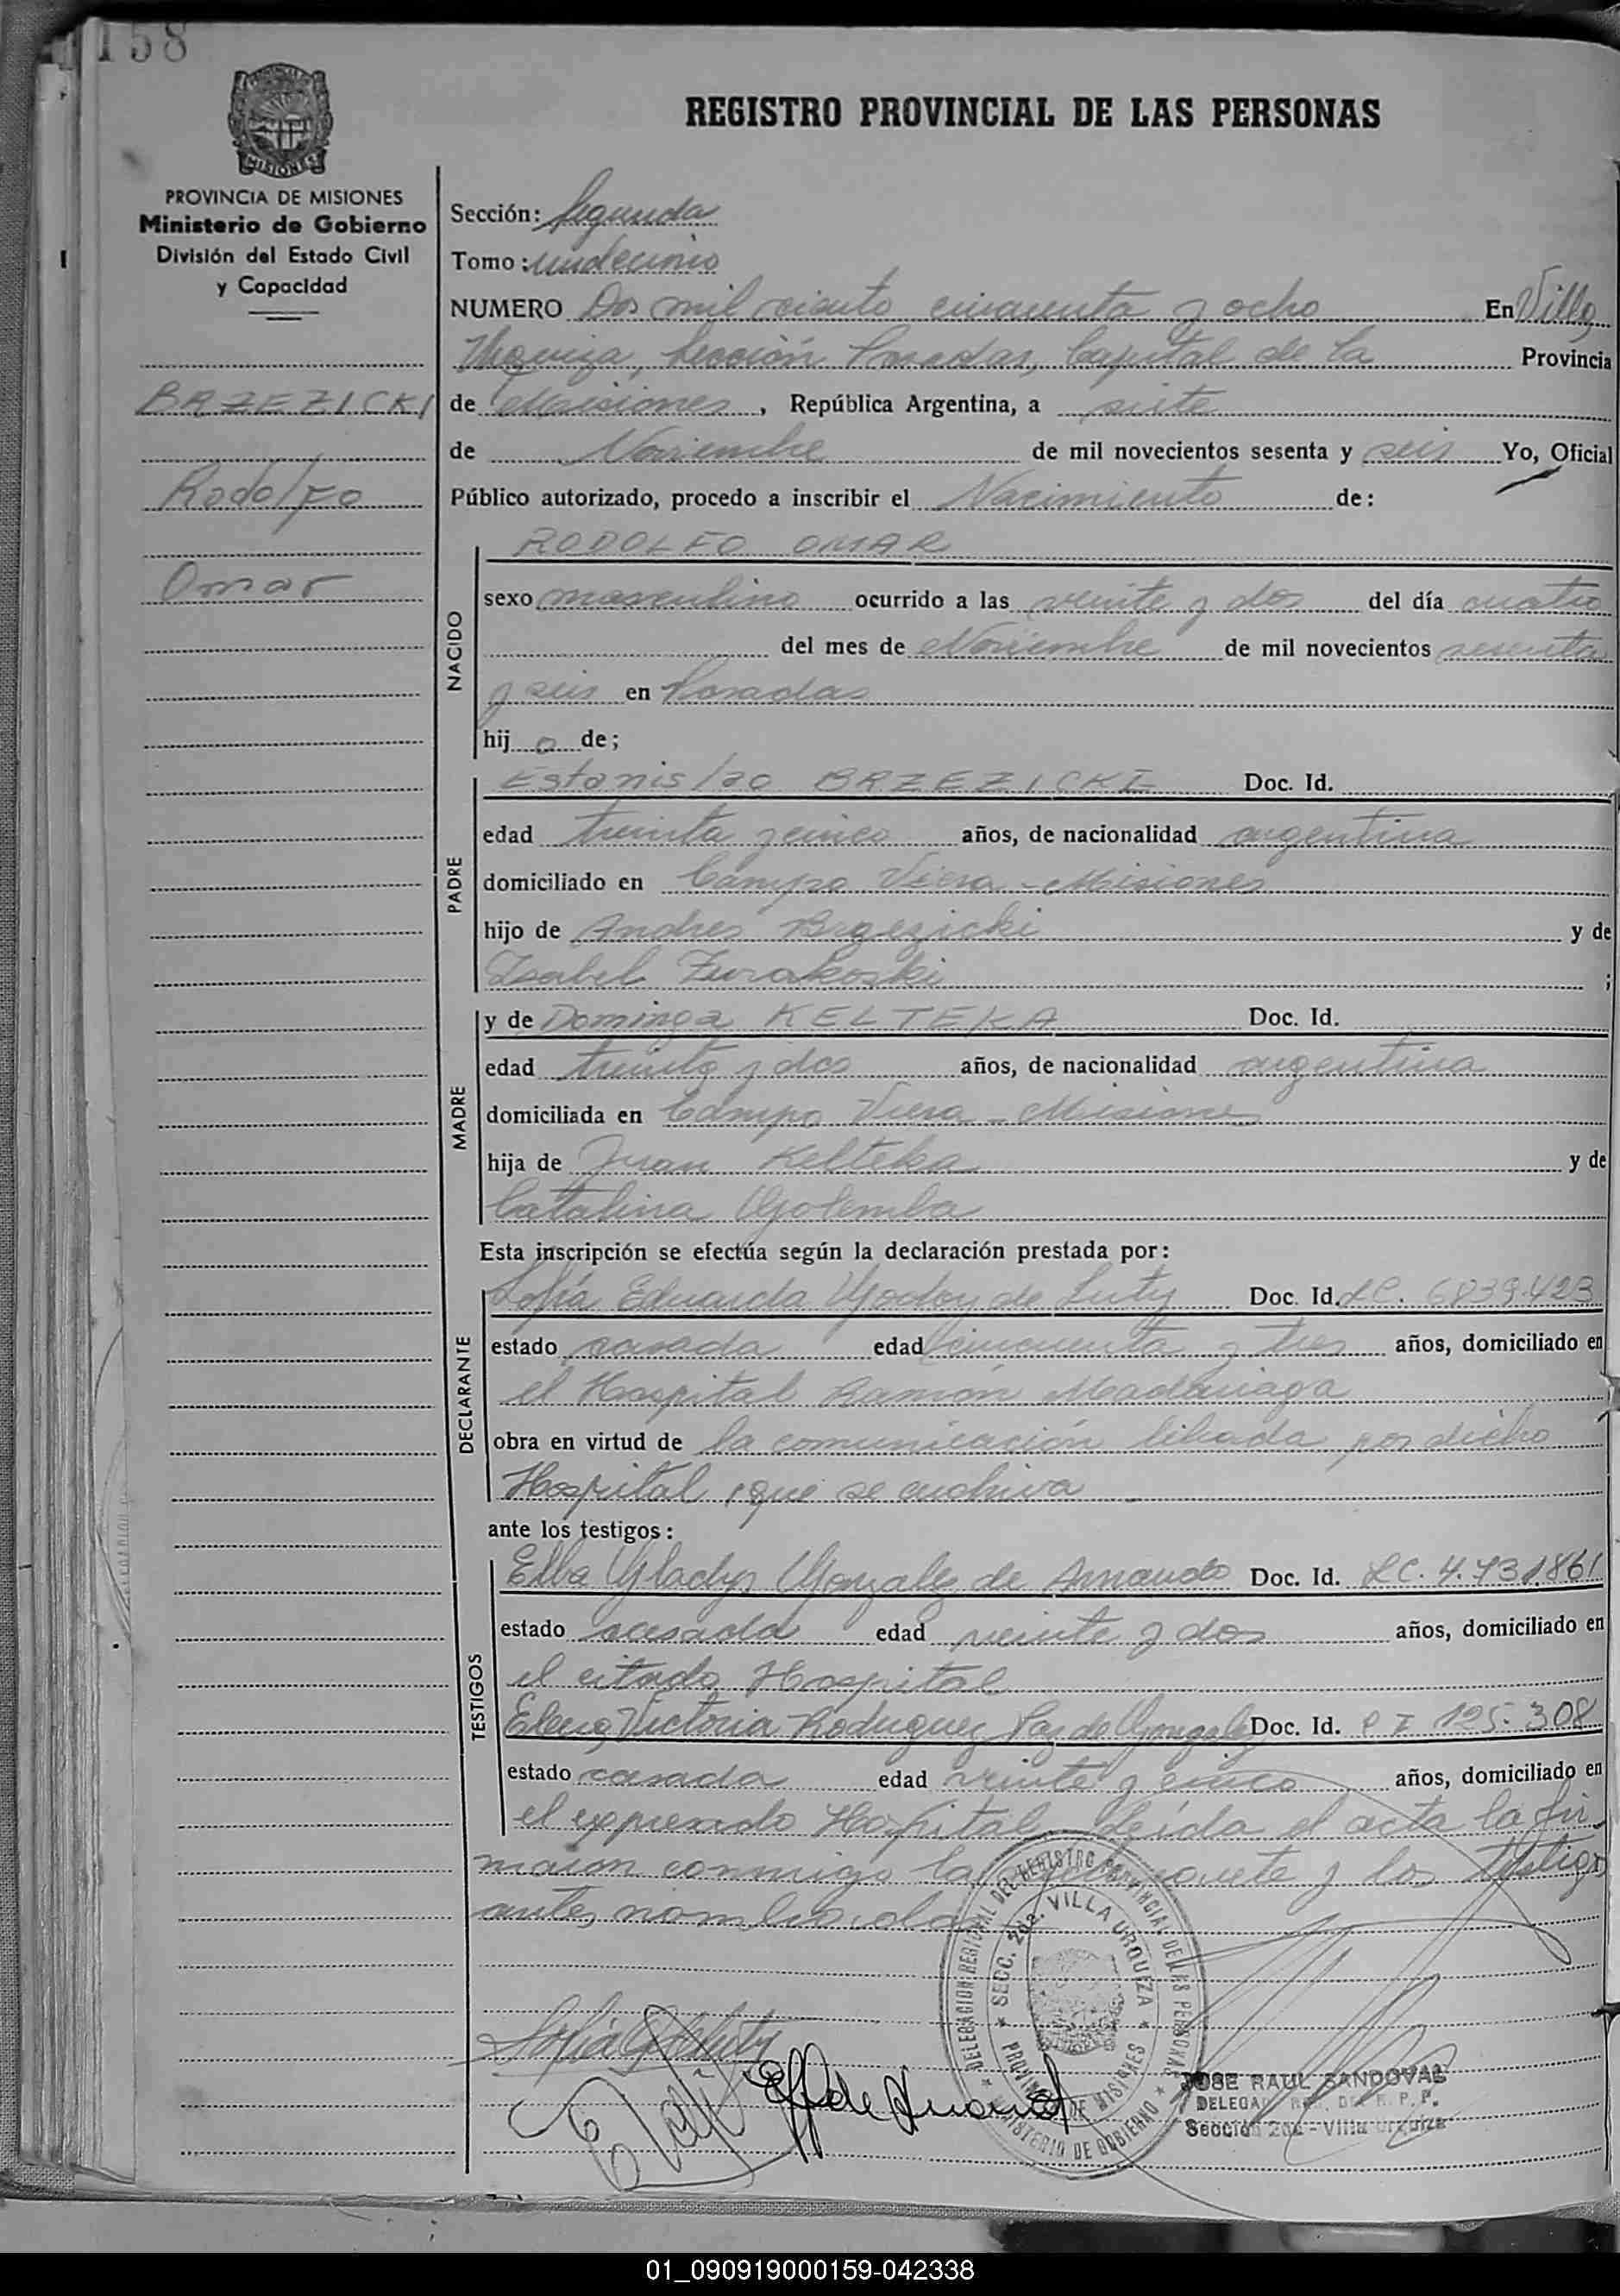 158
REGISTRO PROVINCIAL DE LAS PERSONAS
MISIONES
PROVINCIA DE MISIONES
Ministerio de Gobierno
División del Estado Civil
y Capacidad
BRZEZICKI
Rodolfo
Omar
Sección: Segunda
Tomo: undecimo
NUMERO Dos mil ciento cincuenta y ocho En Villa
Urquiza, Sección Posadas, Capital de la Provincia
de Misiones, República Argentina, a siete
de Noviembre de mil novecientos sesenta y seis Yo, Oficial
Público autorizado, procedo a inscribir el Nacimiento de:
NACIDO
RODOLFO OMAR
sexo masculino ocurrido a las veinte y dos del día cuatro
del mes de Noviembre de mil novecientos sesenta
y seis en Posadas
hij o de;
PADRE
Estanislao BRZEZICKI Doc. Id.
edad treinta y cinco años, de nacionalidad argentina
domiciliado en Campo Viera - Misiones
hijo de Andres Brzezicki y de
Isabel Zurakoski ;
MADRE
y de Dominga KELTEKA Doc. Id.
edad treinta y dos años, de nacionalidad argentina
domiciliada en Campo Viera - Misiones
hija de Juan Kelteka y de
Catalina Golemba
Esta inscripción se efectúa según la declaración prestada por:
DECLARANTE
Sofía Eduarda Godoy de Luty Doc. Id. LC. 6839.423
estado casada edad cincuenta y tres años, domiciliado en
el Hospital Ramón Madariaga
obra en virtud de la comunicación librada por dicho
Hospital, que se archiva
ante los testigos:
TESTIGOS
Elba Gladys Gonzalez de Amando Doc. Id. LC. 4.731.861
estado casada edad veinte y dos años, domiciliado en
el citado Hospital
Elena Victoria Rodriguez Paz de Gonzalez Doc. Id. C I 125.308
estado casada edad veinte y cinco años, domiciliado en
el expresado Hospital. Leída el acta la fir
maron conmigo la y los testigos
antes nombrados
DELEGACION REGIONAL DEL REGISTRO PROVINCIAL DE LAS PERSONAS
SECC. 2da. VILLA URQUIZA
PROVINCIA DE MISIONES
MINISTERIO DE GOBIERNO
JOSE RAUL SANDOVAL
DELEGADO REG. DEL R. P. P.
Sección 2da - Villa Urquiza
01_090919000159-042338